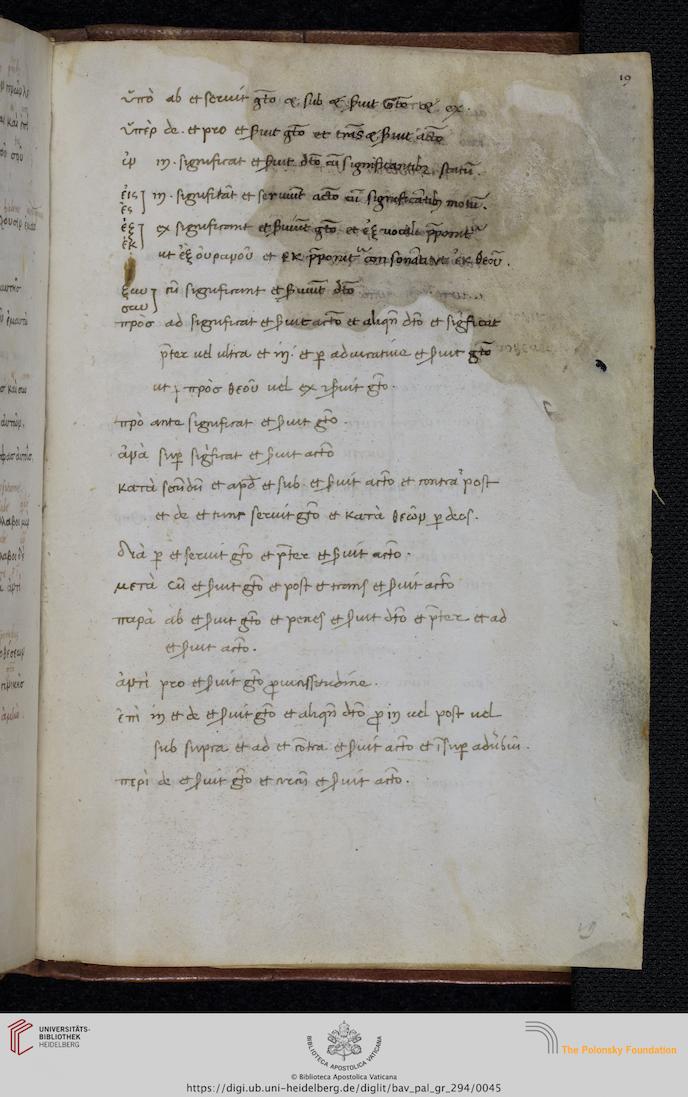 19
ὑπὸ ab et servit gto et sub et s̄vit Gto et ex.
ὑπὲρ de. et pro et s̄vit gto et trās et s̄vit acto
ἐν in. significat et s̄vit dto cū significantibꝫ statū.
εἰς] in. significāt et serviūt acto cū significātibꝫ motū.
ἐς]
ἐξ] ex significant et s̄viūt gto et ἐξ vocali p̄ponitᷣ
ἐκ]
ut ἐξ οὐρανοῦ et εκ p̄ponitᷣ consonāti ut ἐκ θεοῦ.
ξὺν] cū significant et s̄viūt dto
συν
πρὸσ ad significat et s̄vit acto et aliqn̄ dto et sigficat
p̄ter vel ultra et in. et ꝑ advicative et s̄vit gto
ut πρὸσ θεοῦ vel ex s̄vit gto.
πρὸ ante significat et s̄vit gto.
ἀνὰ suꝑ sigficat et s̄vit acto
κατὰ secūdū et apd̄ et sub. et s̄vit acto et contra post
et de et tunc servit gto et κατὰ θεῶν ꝑ deos.
διὰ ꝑ et servit gto et p̄ter et s̄vit acto.
μετὰ cū et s̄vit gto et post et trans et s̄vit acto
παρὰ ab et s̄vit gto et penes et s̄vit dto et p̄ter et ad
et s̄vit acto.
ἀντὶ pro et s̄vit gto ꝓ vicissitudine.
ἐπὶ in et de et s̄vit gto et aliqn̄ dto ꝓ in vel post vel
sub supra et ad et cōtra et s̄vit acto et īsuꝑ
περὶ de et s̄vit gto et circū et s̄vit acto.
19
UNIVERSITÄTS-
BIBLIOTHEK
HEIDELBERG
BIBLIOTECA APOSTOLICA VATICANA
The Polonsky Foundation
© Biblioteca Apostolica Vaticana
https://digi.ub.uni-heidelberg.de/diglit/bav_pal_gr_294/0045